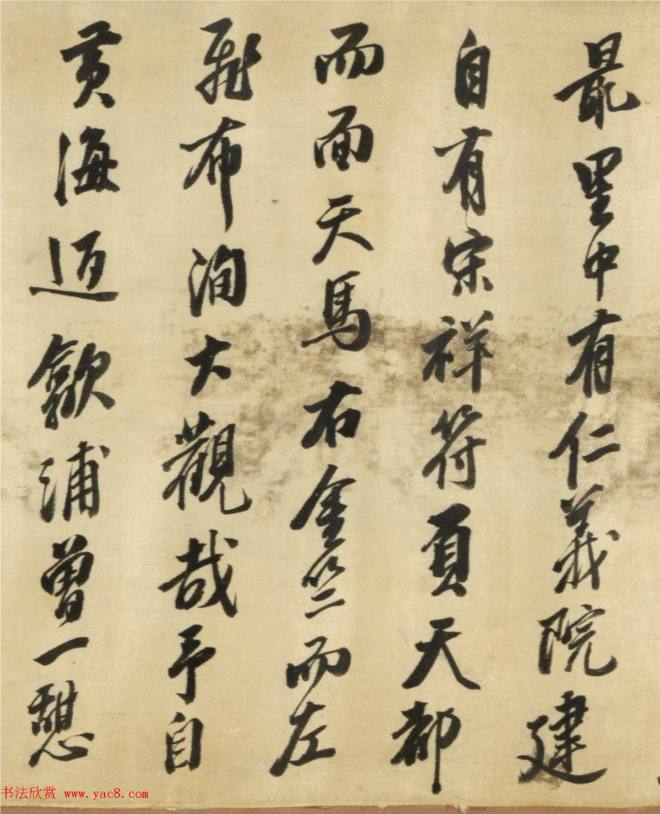 最里中有仁義院建
自有宋祥符負天都
而面天馬右金竺而左
飛布洵大觀哉予自
黃海迈歙浦曽一憇
书法欣赏 www.yac8.com